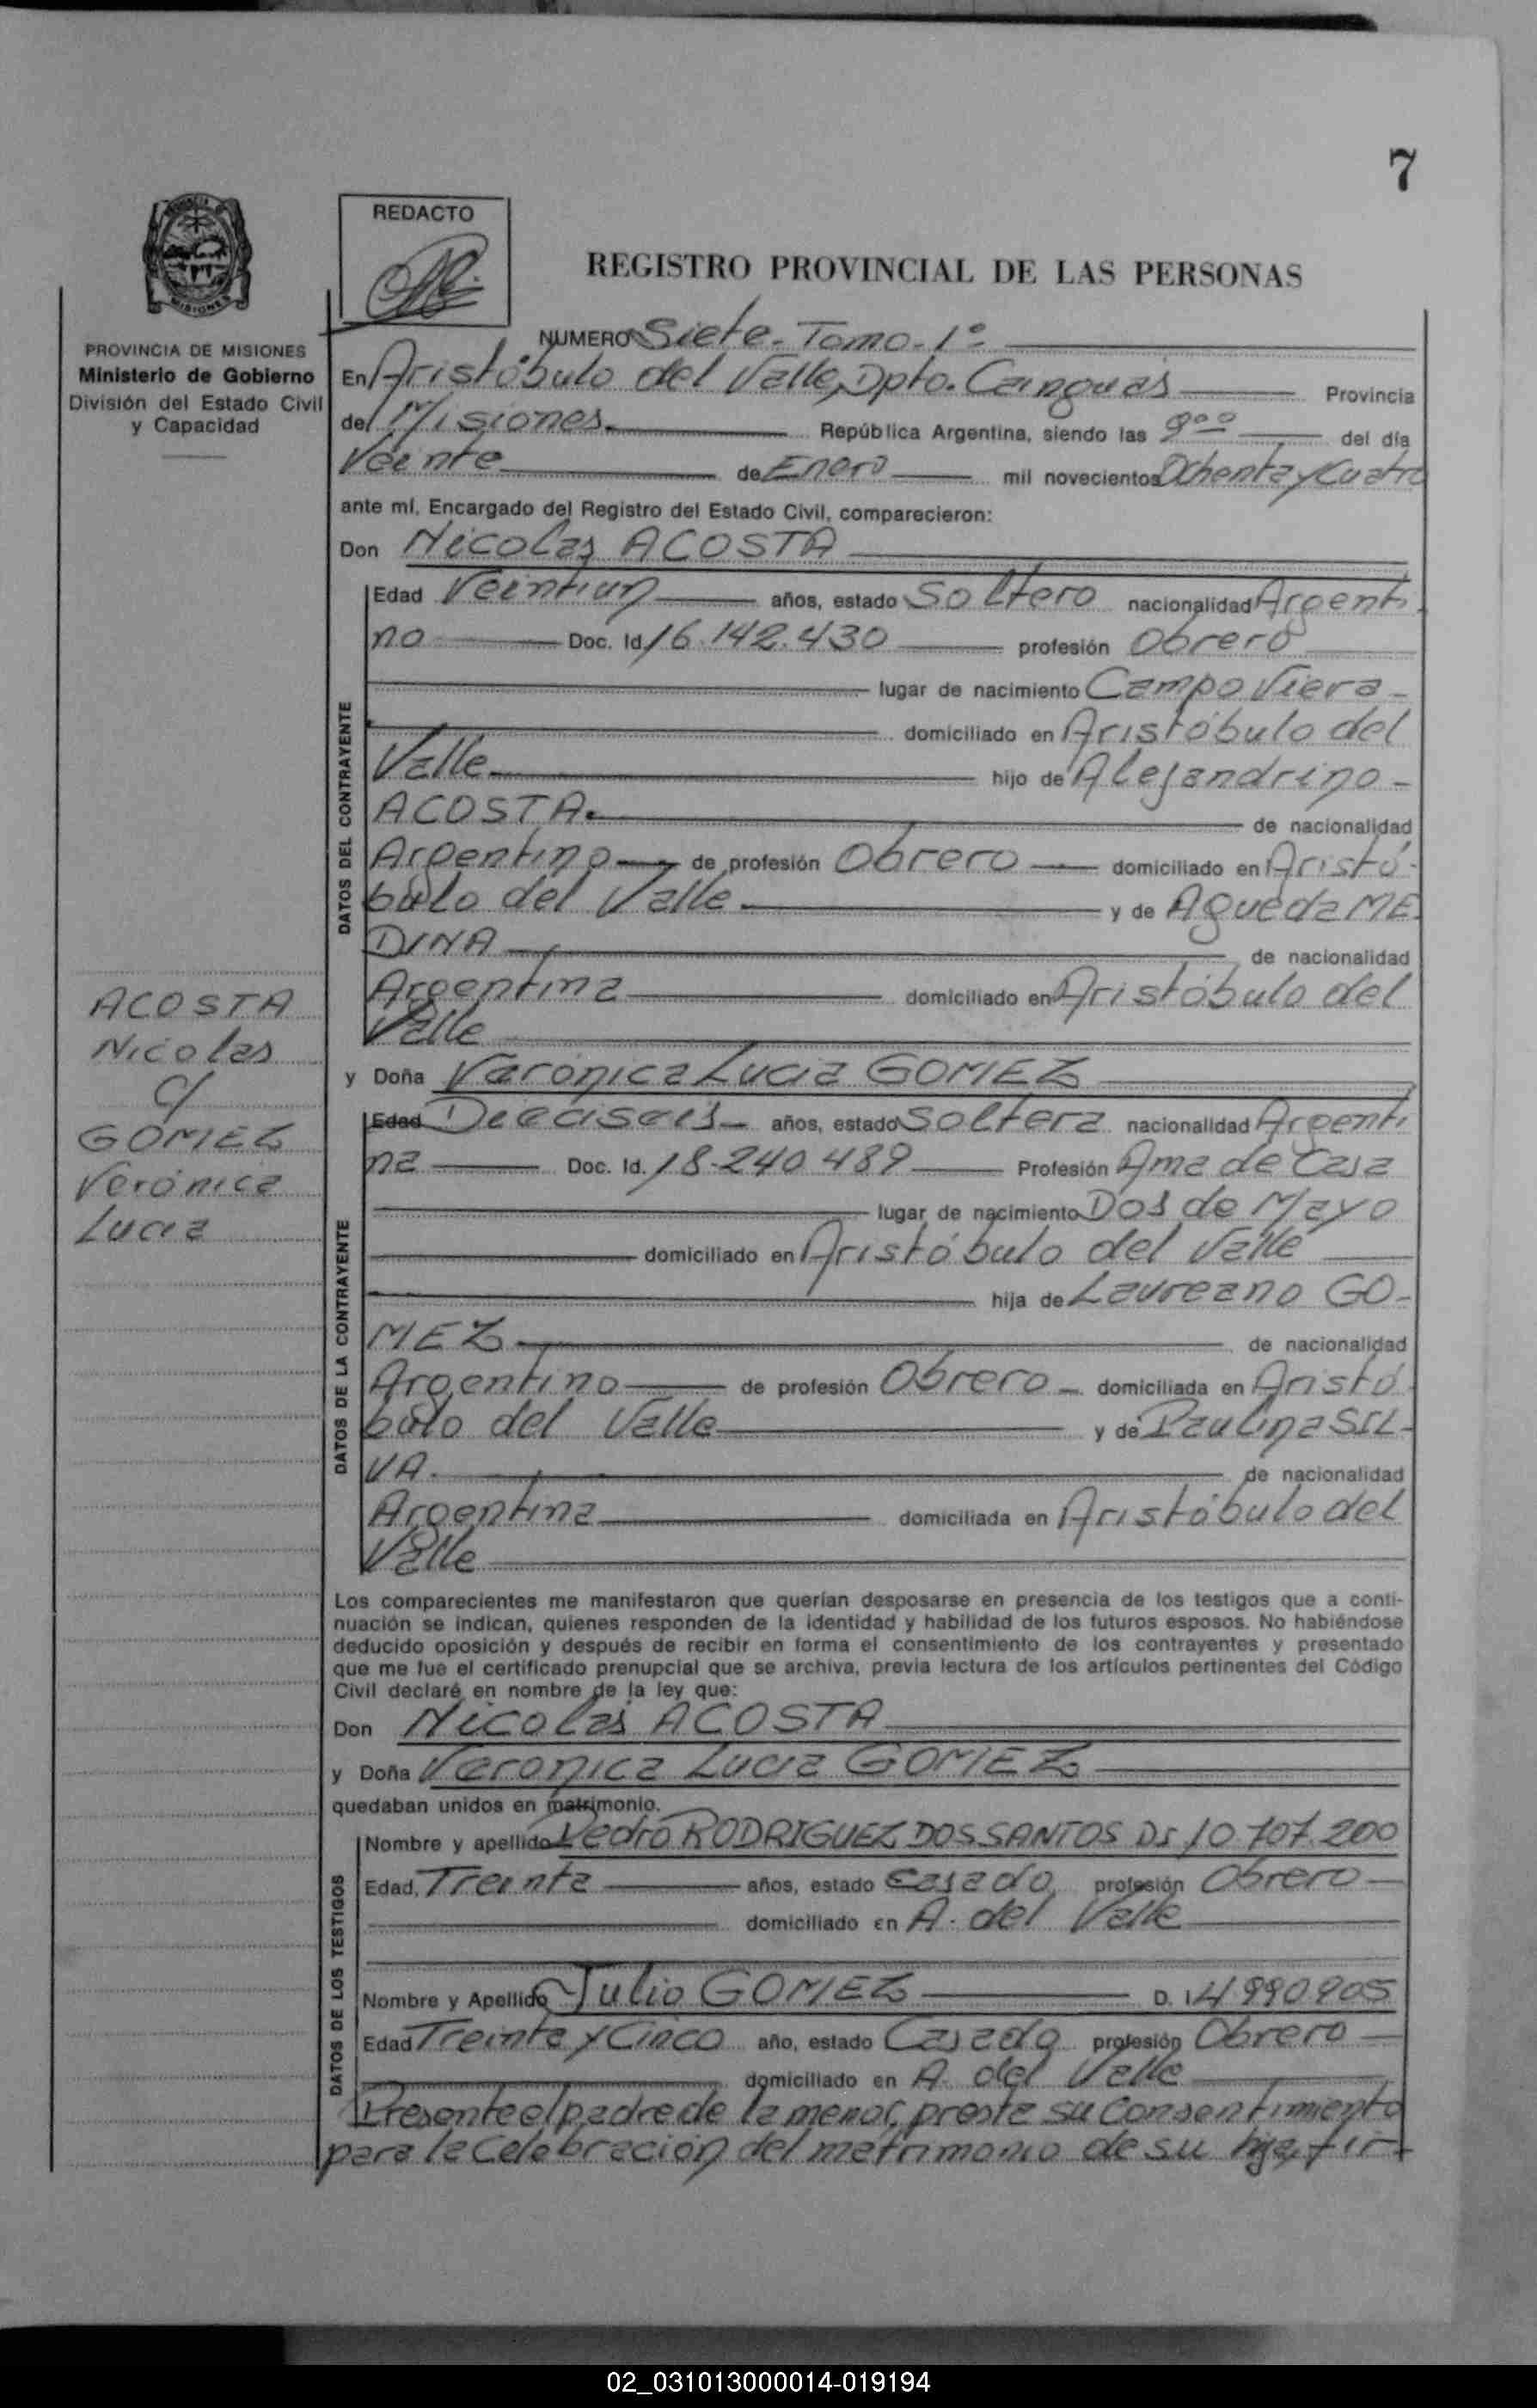 7
REDACTO
REGISTRO PROVINCIAL DE LAS PERSONAS
MISIONES
PROVINCIA DE MISIONES
Ministerio de Gobierno
División del Estado Civil
y Capacidad
NUMERO Siete - Tomo - 1º
En Aristóbulo del Valle, Dpto. Cainguás Provincia
de Misiones. República Argentina, siendo las 9ºº del día
Veinte de Enero mil novecientos Ochenta y Cuatro
ante mí, Encargado del Registro del Estado Civil, comparecieron:
Don Nicolas ACOSTA
DATOS DEL CONTRAYENTE
Edad Veintiun años, estado Soltero nacionalidad Argenti
no Doc. Id. 16.142.430 profesión Obrero
lugar de nacimiento Campo Viera -
domiciliado en Aristóbulo del
Valle hijo de Alejandrino -
ACOSTA. de nacionalidad
Argentino de profesión Obrero domiciliado en Aristó-
bulo del Valle y de Agueda ME
DINA de nacionalidad
Argentina domiciliado en Aristóbulo del
Valle
ACOSTA
Nicolas
c/
GOMEZ
Verónica
Lucia
y Doña Verónica Lucia GOMEZ
DATOS DE LA CONTRAYENTE
Edad Dieciseis años, estado Soltera nacionalidad Argenti
na Doc. Id. 18.240.489 Profesión Ama de Casa
lugar de nacimiento Dos de Mayo
domiciliado en Aristóbulo del Valle
hija de Laureano GO-
MEZ de nacionalidad
Argentino de profesión Obrero domiciliada en Aristó
bulo del Valle y de Paulina SIL-
VA. de nacionalidad
Argentina domiciliada en Aristóbulo del
Valle
Los comparecientes me manifestaron que querían desposarse en presencia de los testigos que a conti-
nuación se indican, quienes responden de la identidad y habilidad de los futuros esposos. No habiéndose
deducido oposición y después de recibir en forma el consentimiento de los contrayentes y presentado
que me fue el certificado prenupcial que se archiva, previa lectura de los artículos pertinentes del Código
Civil declaré en nombre de la ley que:
Don Nicolas ACOSTA
y Doña Veronica Lucia GOMEZ
quedaban unidos en matrimonio.
DATOS DE LOS TESTIGOS
Nombre y apellido Pedro RODRIGUEZ DOS SANTOS DI 10.707.200
Edad, Treinta años, estado Casado profesión Obrero
domiciliado en A. del Valle
Nombre y Apellido Julio GOMEZ D. I 4990905
Edad Treinta y Cinco año, estado Casado profesión Obrero
domiciliado en A. del Valle
Presente el padre de la menor, presta su consentimiento
para la celebración del matrimonio de su hija, fir-
02_031013000014-019194